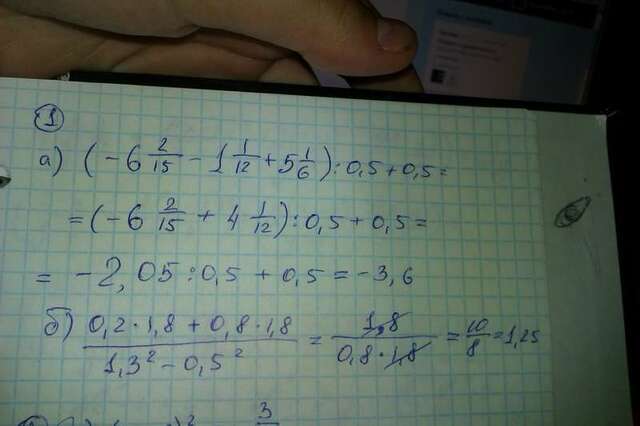 ①
а) (-6 2/15 - 1 1/12 + 5 1/6) : 0,5 + 0,5 =
= (-6 2/15 + 4 1/12) : 0,5 + 0,5 =
= -2,05 : 0,5 + 0,5 = -3,6
б) (0,2 · 1,8 + 0,8 · 1,8)/(1,3² - 0,5²) = 1,8/(0,8 · 1,8) = 10/8 = 1,25